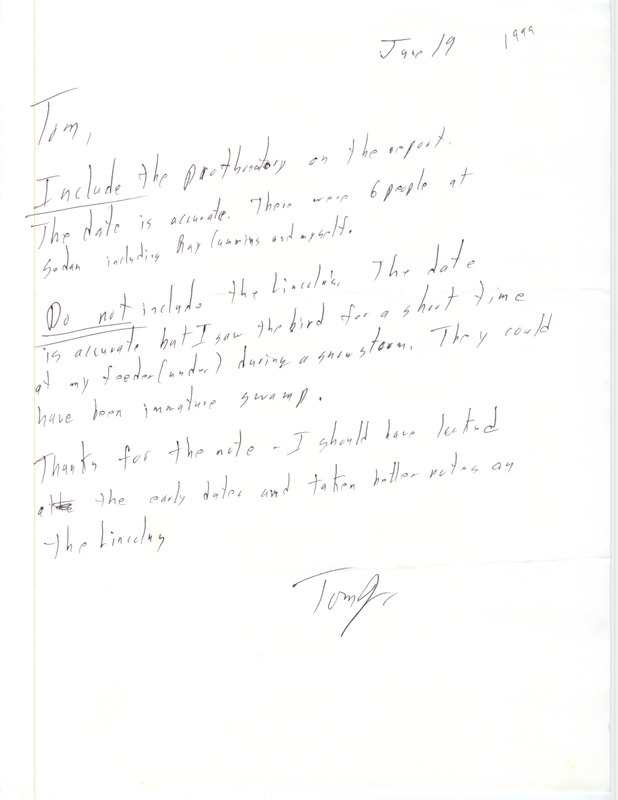 June 19 1999
Tom,
Include the prothonotary on the report.
The date is accurate. There were 6 people at
including Ray Cummins and myself.
Do not include the Lincoln's. The date
is accurate but I saw the bird for a short time
at my feeder (under) during a snowstorm. They could
have been immature swamp.
Thanks for the note - I should have looked
at the early dates and taken better notes on
the Lincolns
Tom